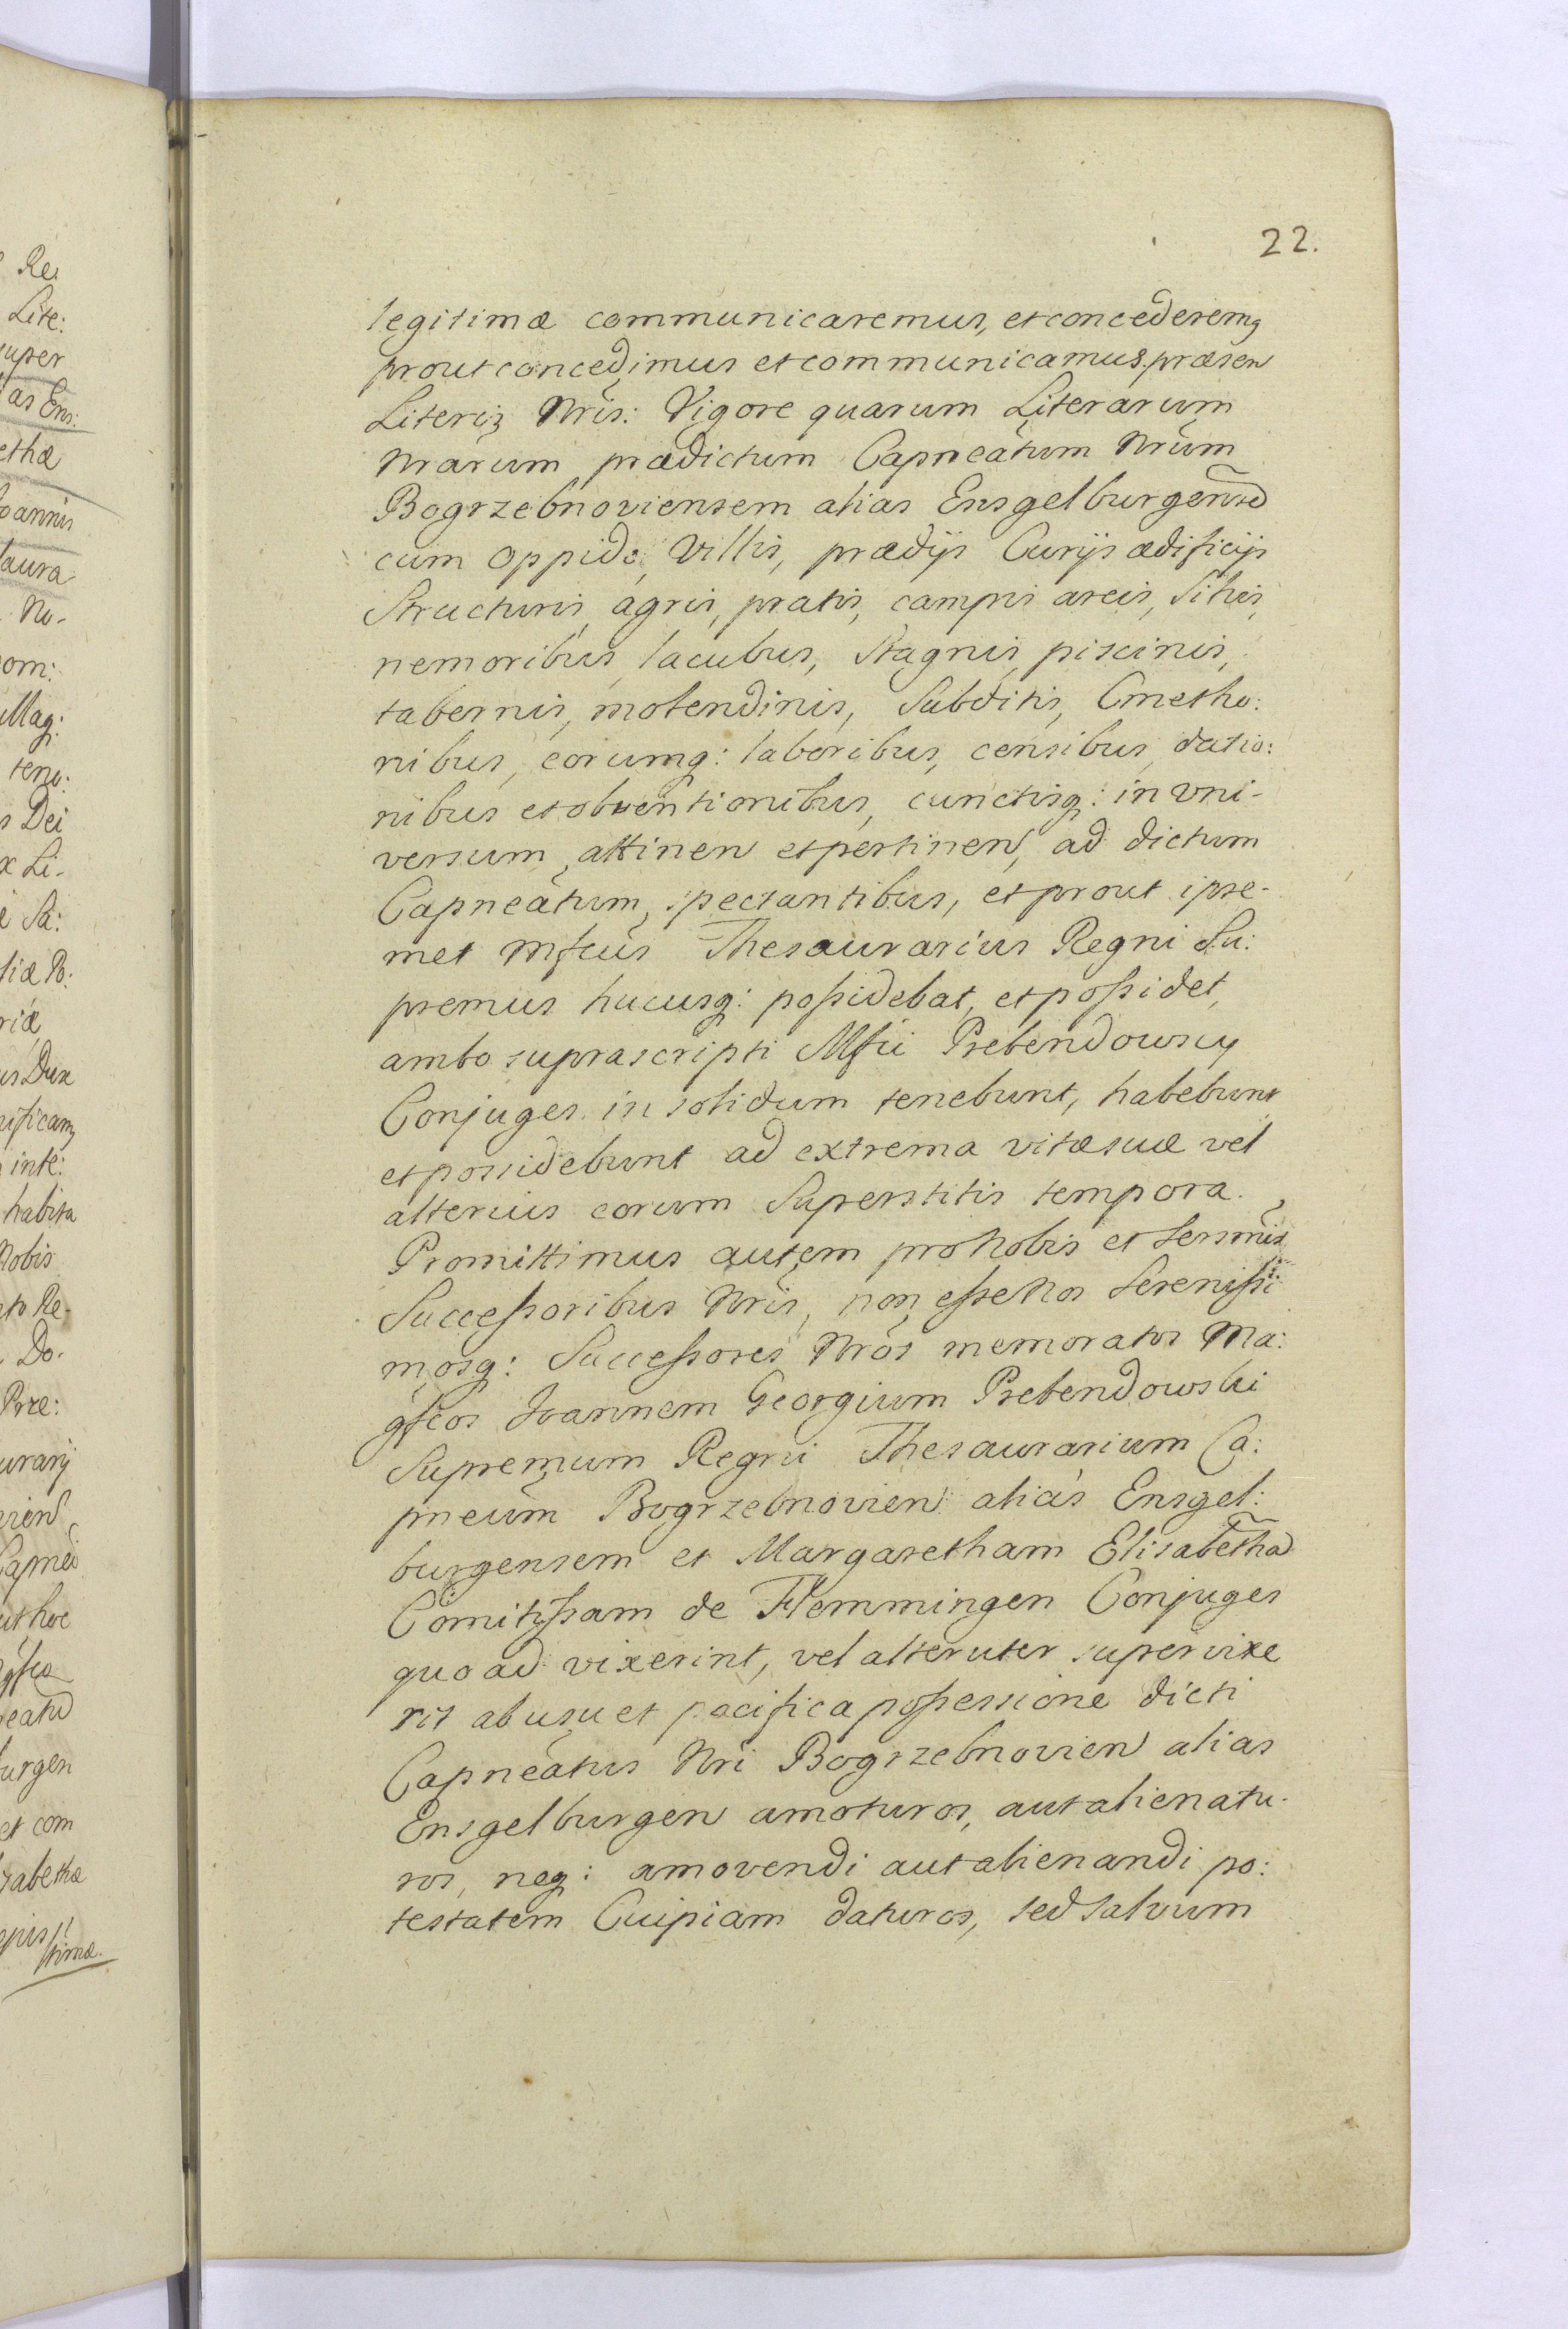 22.
legitimæ communicaremus, et concederemq
prout concedimus et communicamus præsen
Literis Nris: Vigore quarum Literarum
Nrarum prædictum Capneatum Nrum
Bogrzebnoviensem alias Ensgelburgensē
cum oppido, Villis, prædijs Curijs ædificijs
Structuris, agris, pratis, campis areis, Silvis,
nemoribus, lacubus, Stagnis, piscinis,
tabernis, molendinis, Subditis, Cmetho:
nibus, eorumq: laboribus, censibus, datio:
nibus et obventionibus, cunctisq: in vni-
versum, attinen et pertinen, ad dictum
Capneatum, spectantibus, et prout ipse-
met Mfcus Thesaurarius Regni Su:
premus hucusq: poßidebat, et poßidet,
ambo suprascripti Mfii Prebendowscy
Conjuges in solidum tenebunt, habebunt
et possidebunt ad extrema vitæ suæ vel
alterius eorum Superstitis tempora.
Promittimus autem pro Nobis et Sersmis
Succeßoribus Nris, non eße Nos Sereniß̃i
mosq: Succeßores Nros memoratos Ma:
gfcos Joannem Georgium Prebendowski
Supremum Regni Thesaurarium Ca:
pneum Bogrzebnovien alias Ensgel:
burgensem et Margaretham Elisabethā
Comitißam de Flemmingen Conjuges
quo ad vixerint, vel alteruter supervixe
rit ab usu et pacifica poßessione dicti
Capneatus Nri Bogrzebnovien alias
Ensgelburgen amoturos, aut alienatu-
ros, neq: amovendi aut alienandi po:
testatem Cuipiam daturos, sed salvum